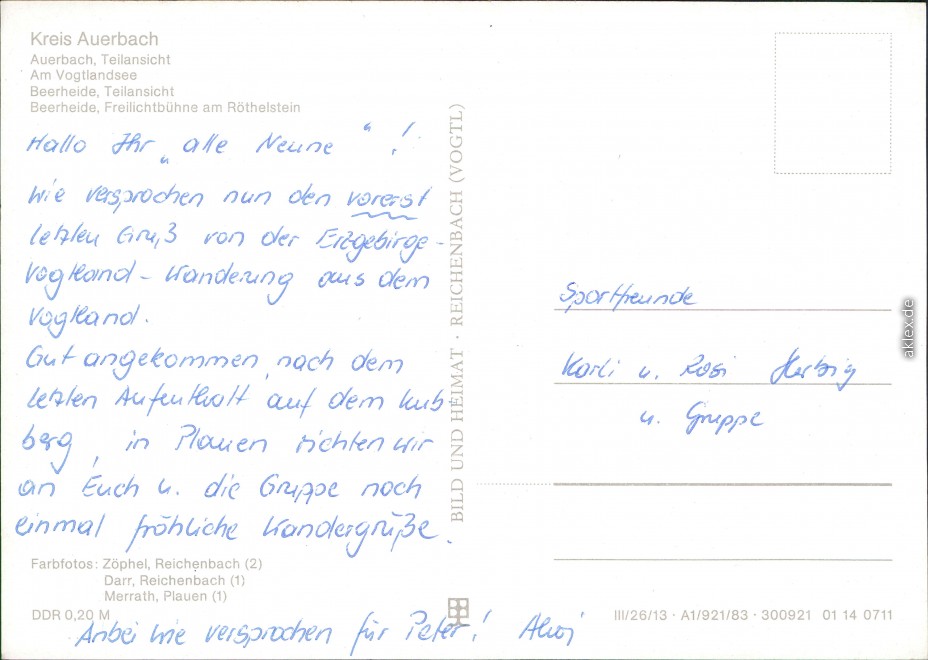 Kreis Auerbach
Auerbach, Teilansicht
Am Vogtlandsee
Beerheide, Teilansicht
Beerheide, Freilichtbühne am Röthelstein
Hallo Ihr „alle Neune“!
Wie versprochen nun den vorerst
letzten Gruß von der Erzgebirge-
Vogtland-Wanderung aus dem
Vogtland.
Gut angekommen, nach dem
letzten Aufenthalt auf dem Kuh-
berg, in Plauen richten wir
an Euch u. die Gruppe noch
einmal fröhliche Wandergrüße.
Farbfotos: Zöphel, Reichenbach (2)
Darr, Reichenbach (1)
Merrath, Plauen (1)
DDR 0,20 M
Anbei wie versprochen für Peter! Ahoj
BILD UND HEIMAT · REICHENBACH (VOGTL)
Sportfreunde
Karli u. Rosi Herbig
u. Gruppe
III/26/13 · A1/921/83 · 300921 01 14 0711
aklex.de